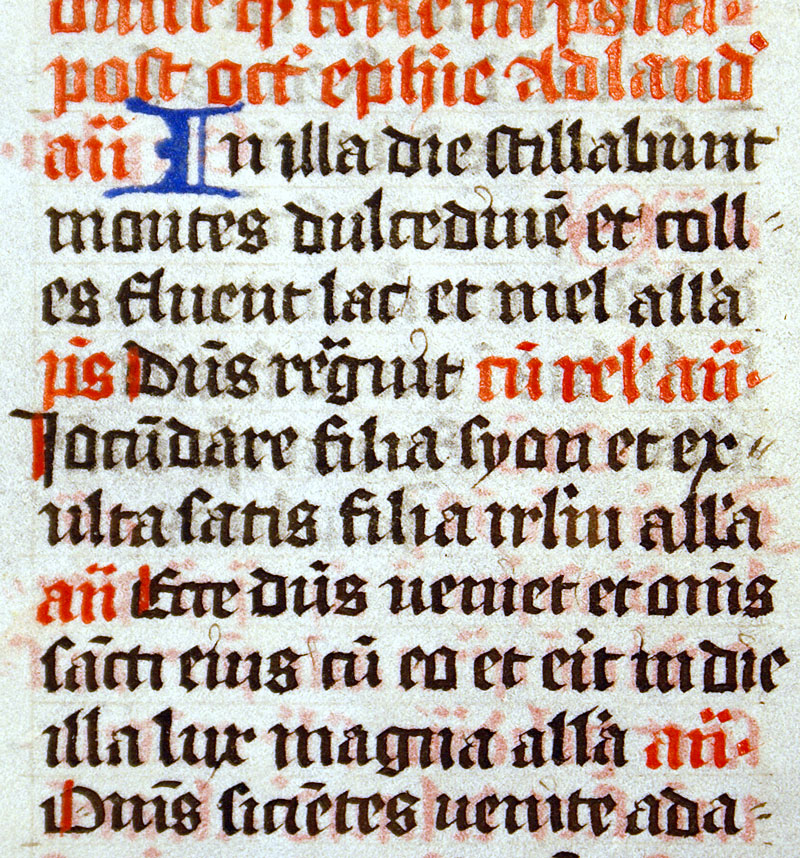 post oct' ephie Ad laud'
an̄ In illa die stillabunt
montes dulcedinē et coll=
es fluent lac et mel all'a
ps Dn̄s regnuit cū rel' an̄.
Jocūdare filia syon et ex=
ulta satis filia irl'm all'a
an̄ Ecce dn̄s veniet et om̄s
sācti eius cū eo et eit in die
illa lux magna all'a an̄.
Om̄s siciētes venite ad a=